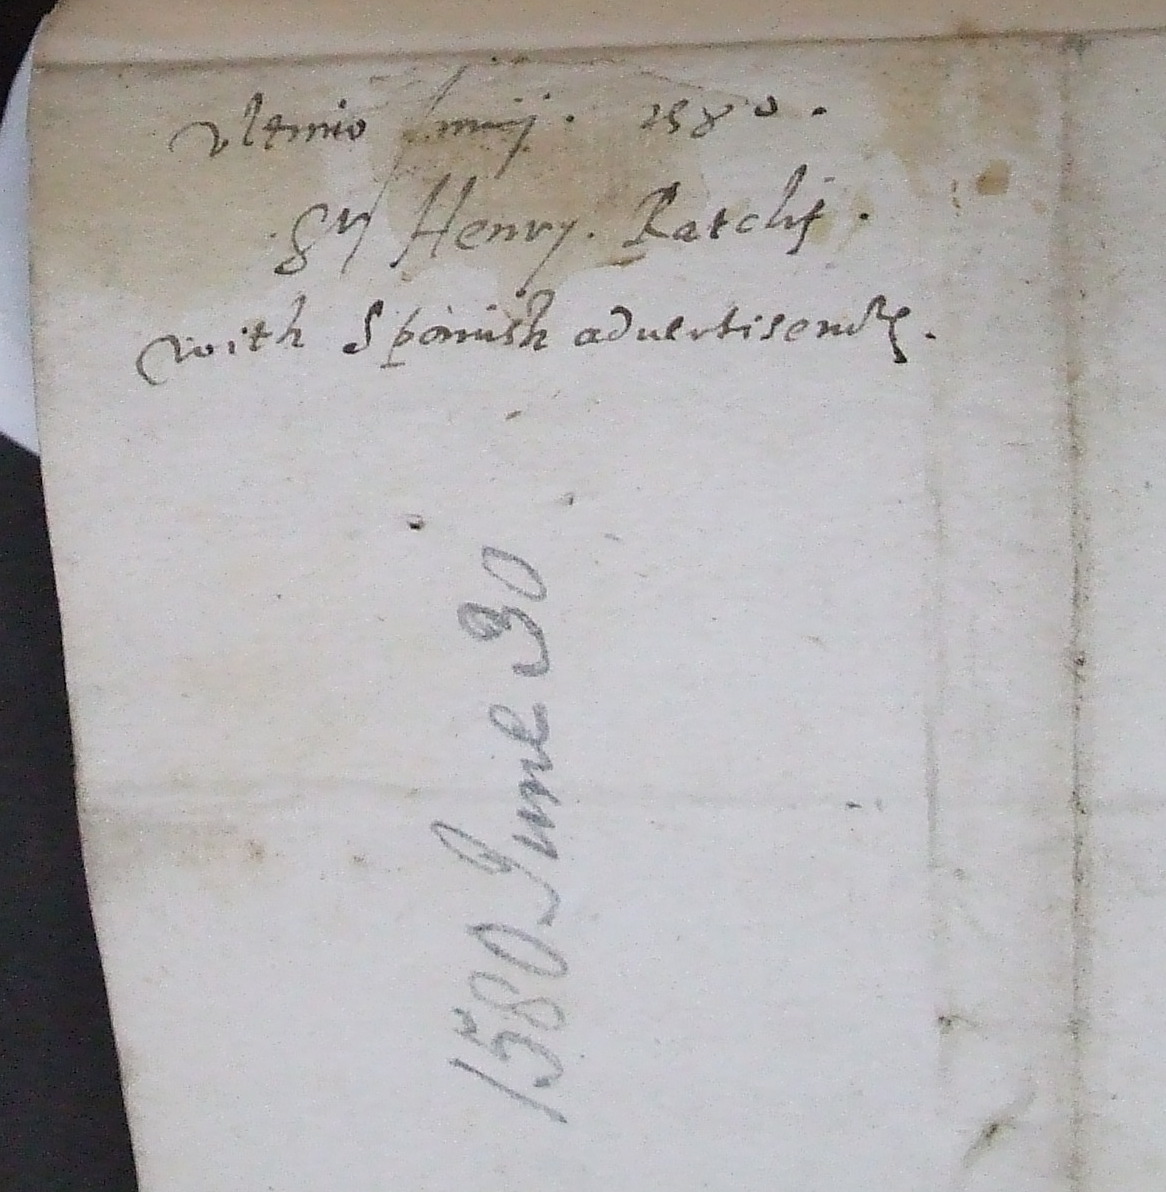 vltimo Junij. 1580.
Sr Henry. Ratclif.
with Spanish aduertisemtes.
1580 June 30